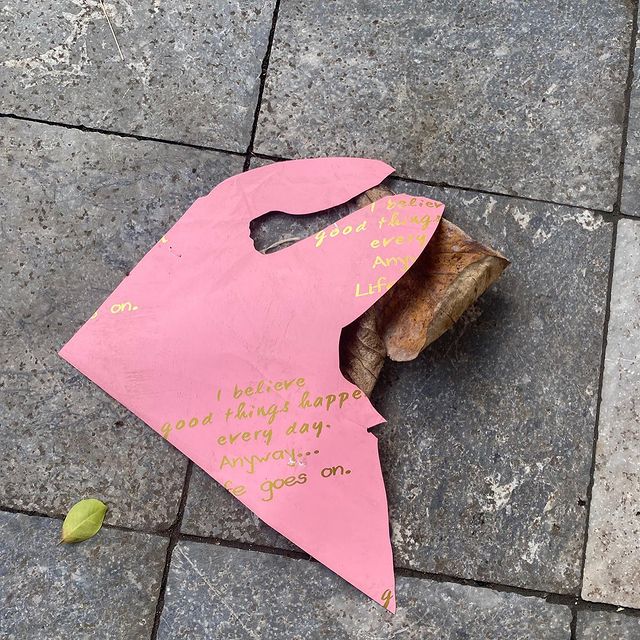 I believer
good things
every
Any
Life
on.
I believe
good things happe
every day.
Anyway...
fe goes on.
g